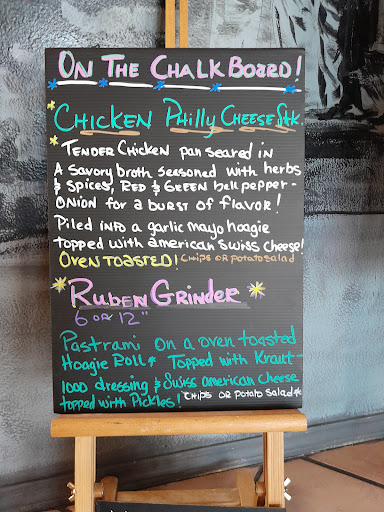 On The Chalk Board!
Chicken Philly Cheese Stk.
Tender Chicken pan seared in
A savory broth seasoned with herbs
& spices, Red & Green bell pepper-
onion for a burst of flavor!
Piled into a garlic mayo hoagie
topped with american swiss cheese!
Oven Toasted! Chips or potato salad
Ruben Grinder
6 or 12"
Pastrami on a oven toasted
Hoagie Roll Topped with Kraut-
1000 dressing & Swiss american cheese
topped with Pickles! Chips or Potato Salad